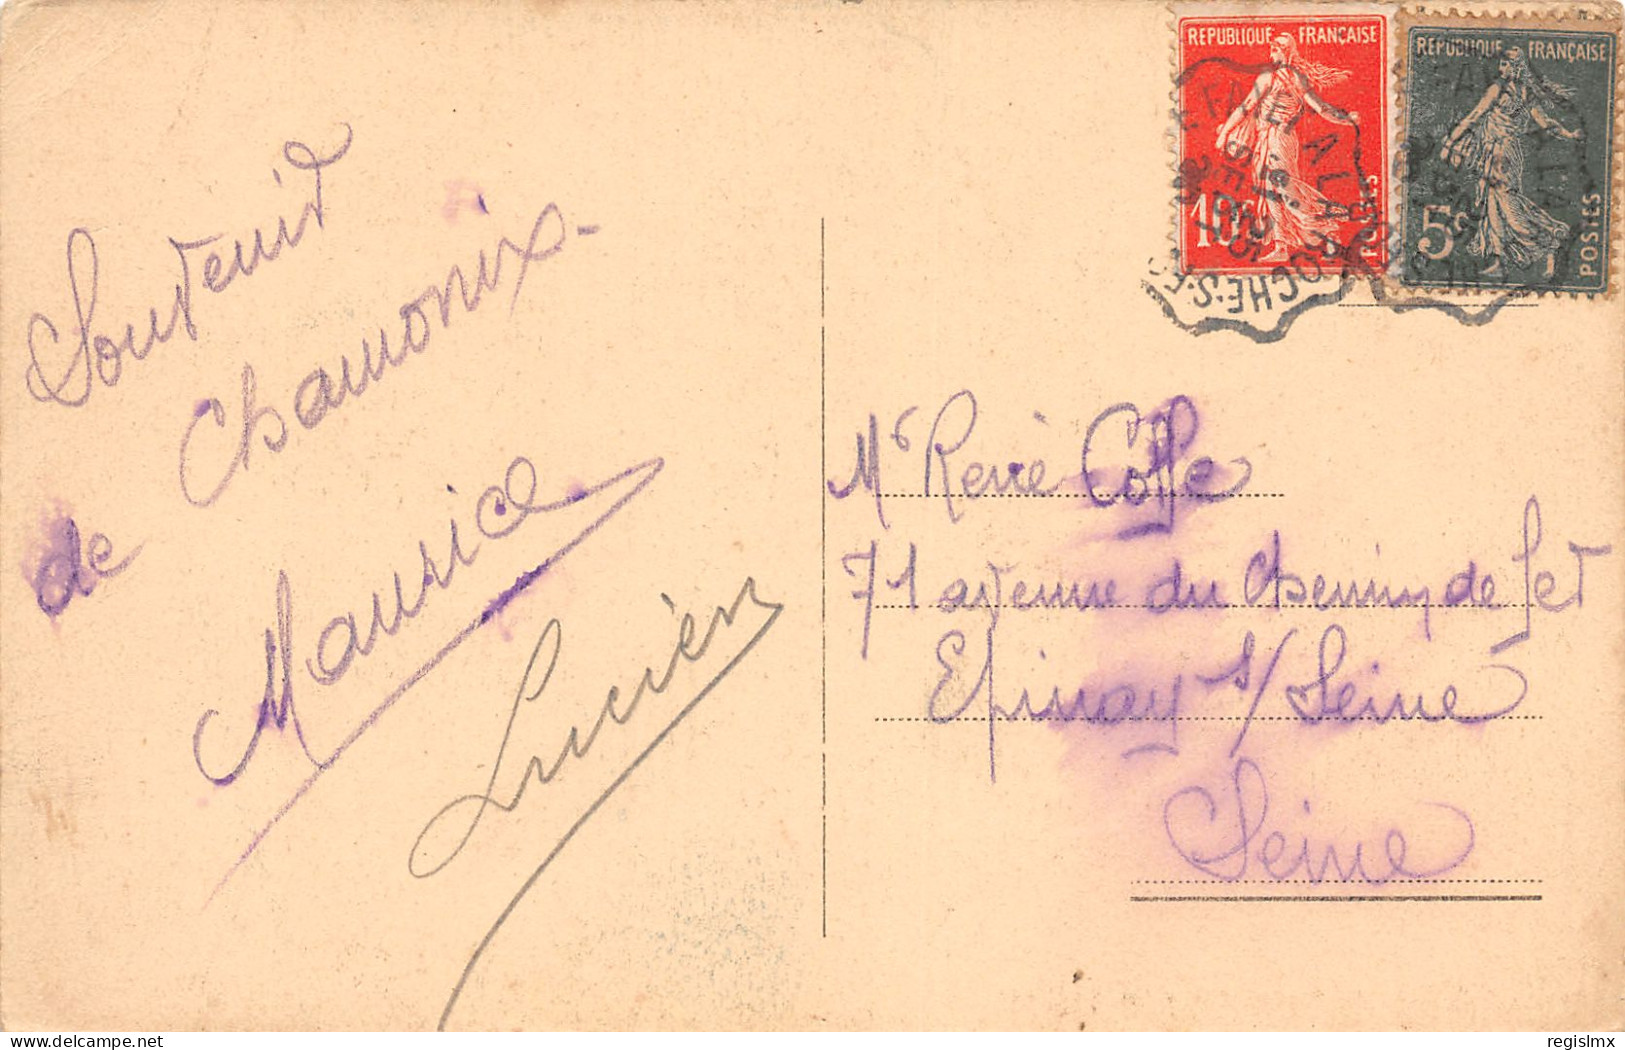 Souvenir
de Chamonix-
Maurice
Lucien
REPUBLIQUE FRANÇAISE
10c
POSTES
REPUBLIQUE FRANÇAISE
5c
POSTES
FAYET A LA ROCHE·S·F·
Mr René Coffe
71 avenue du Chemin de fer
Epinay s/Seine
Seine
regislmx
delcampe.net